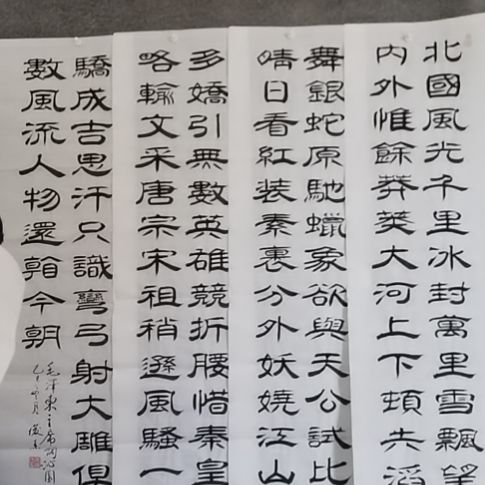 北國風光千里冰封萬里雪飄望
內外惟餘莽莽大河上下頓失滔
舞銀蛇原馳蠟象欲與天公試比
晴日看紅装素裹分外妖嬈江山
多嬌引無數英雄競折腰惜秦皇
略輸文采唐宗宋祖稍遜風騷一
驕成吉思汗只識彎弓射大雕俱
數風流人物還看今朝
毛泽東主席詞沁園